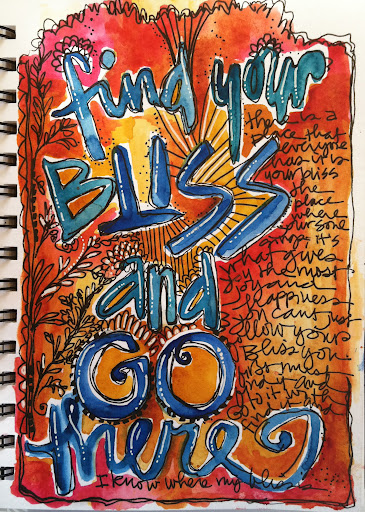 find your
BLISS
and
GO
there
there is a
place that
everyone
has it is
your bliss
the
place
where
your soul
sings it's
that gives
you the most
joy and
happiness
can't just
follow your
Bliss you
just must
find it and
go to it with
I know where my bliss is